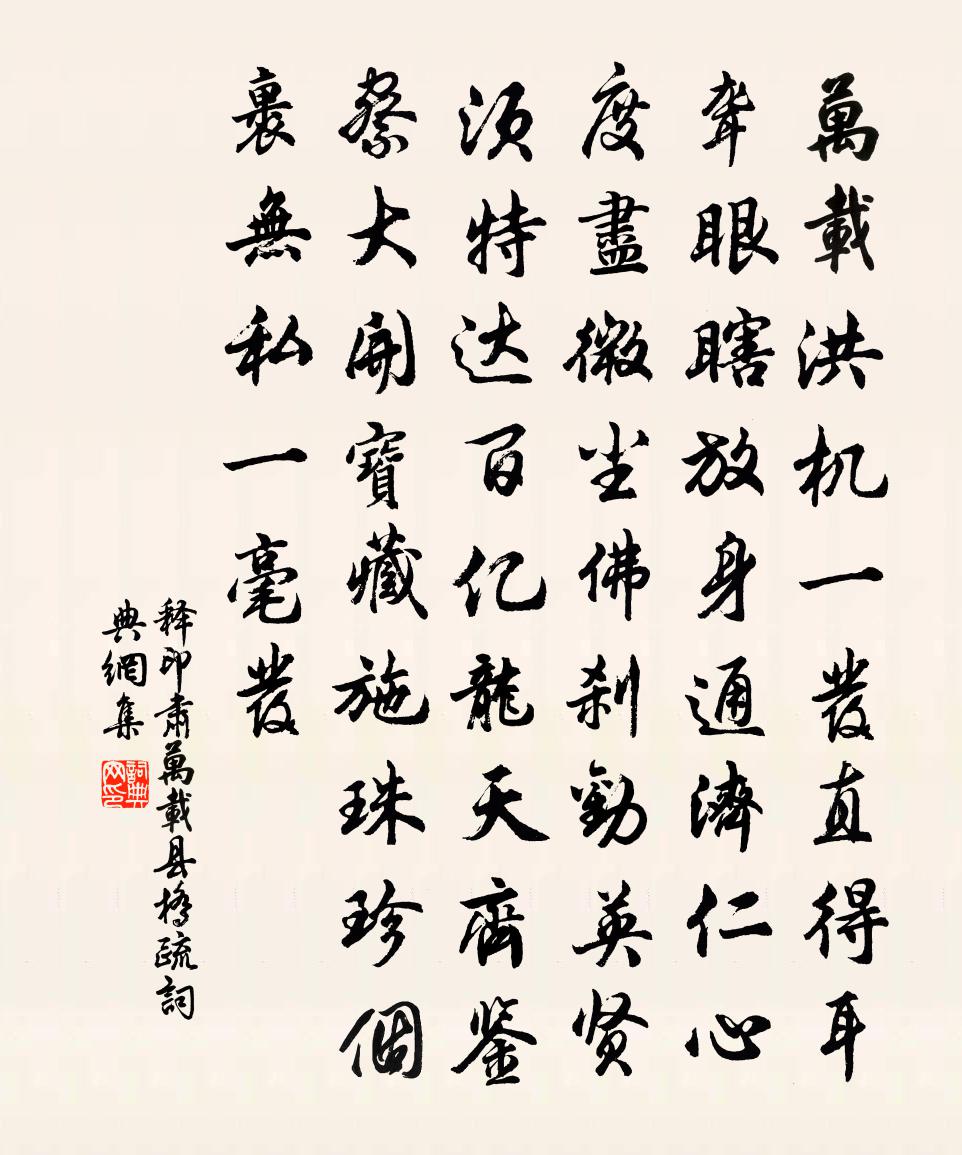 萬載洪机一發直得耳
聋眼瞎放身通濟仁心
度盡微尘佛刹勸英贤
须特达百亿龍天齊鉴
察大開寶藏施珠珍個
裏無私一毫發
释印肃萬載县橋疏詞
典網集
詞典网印